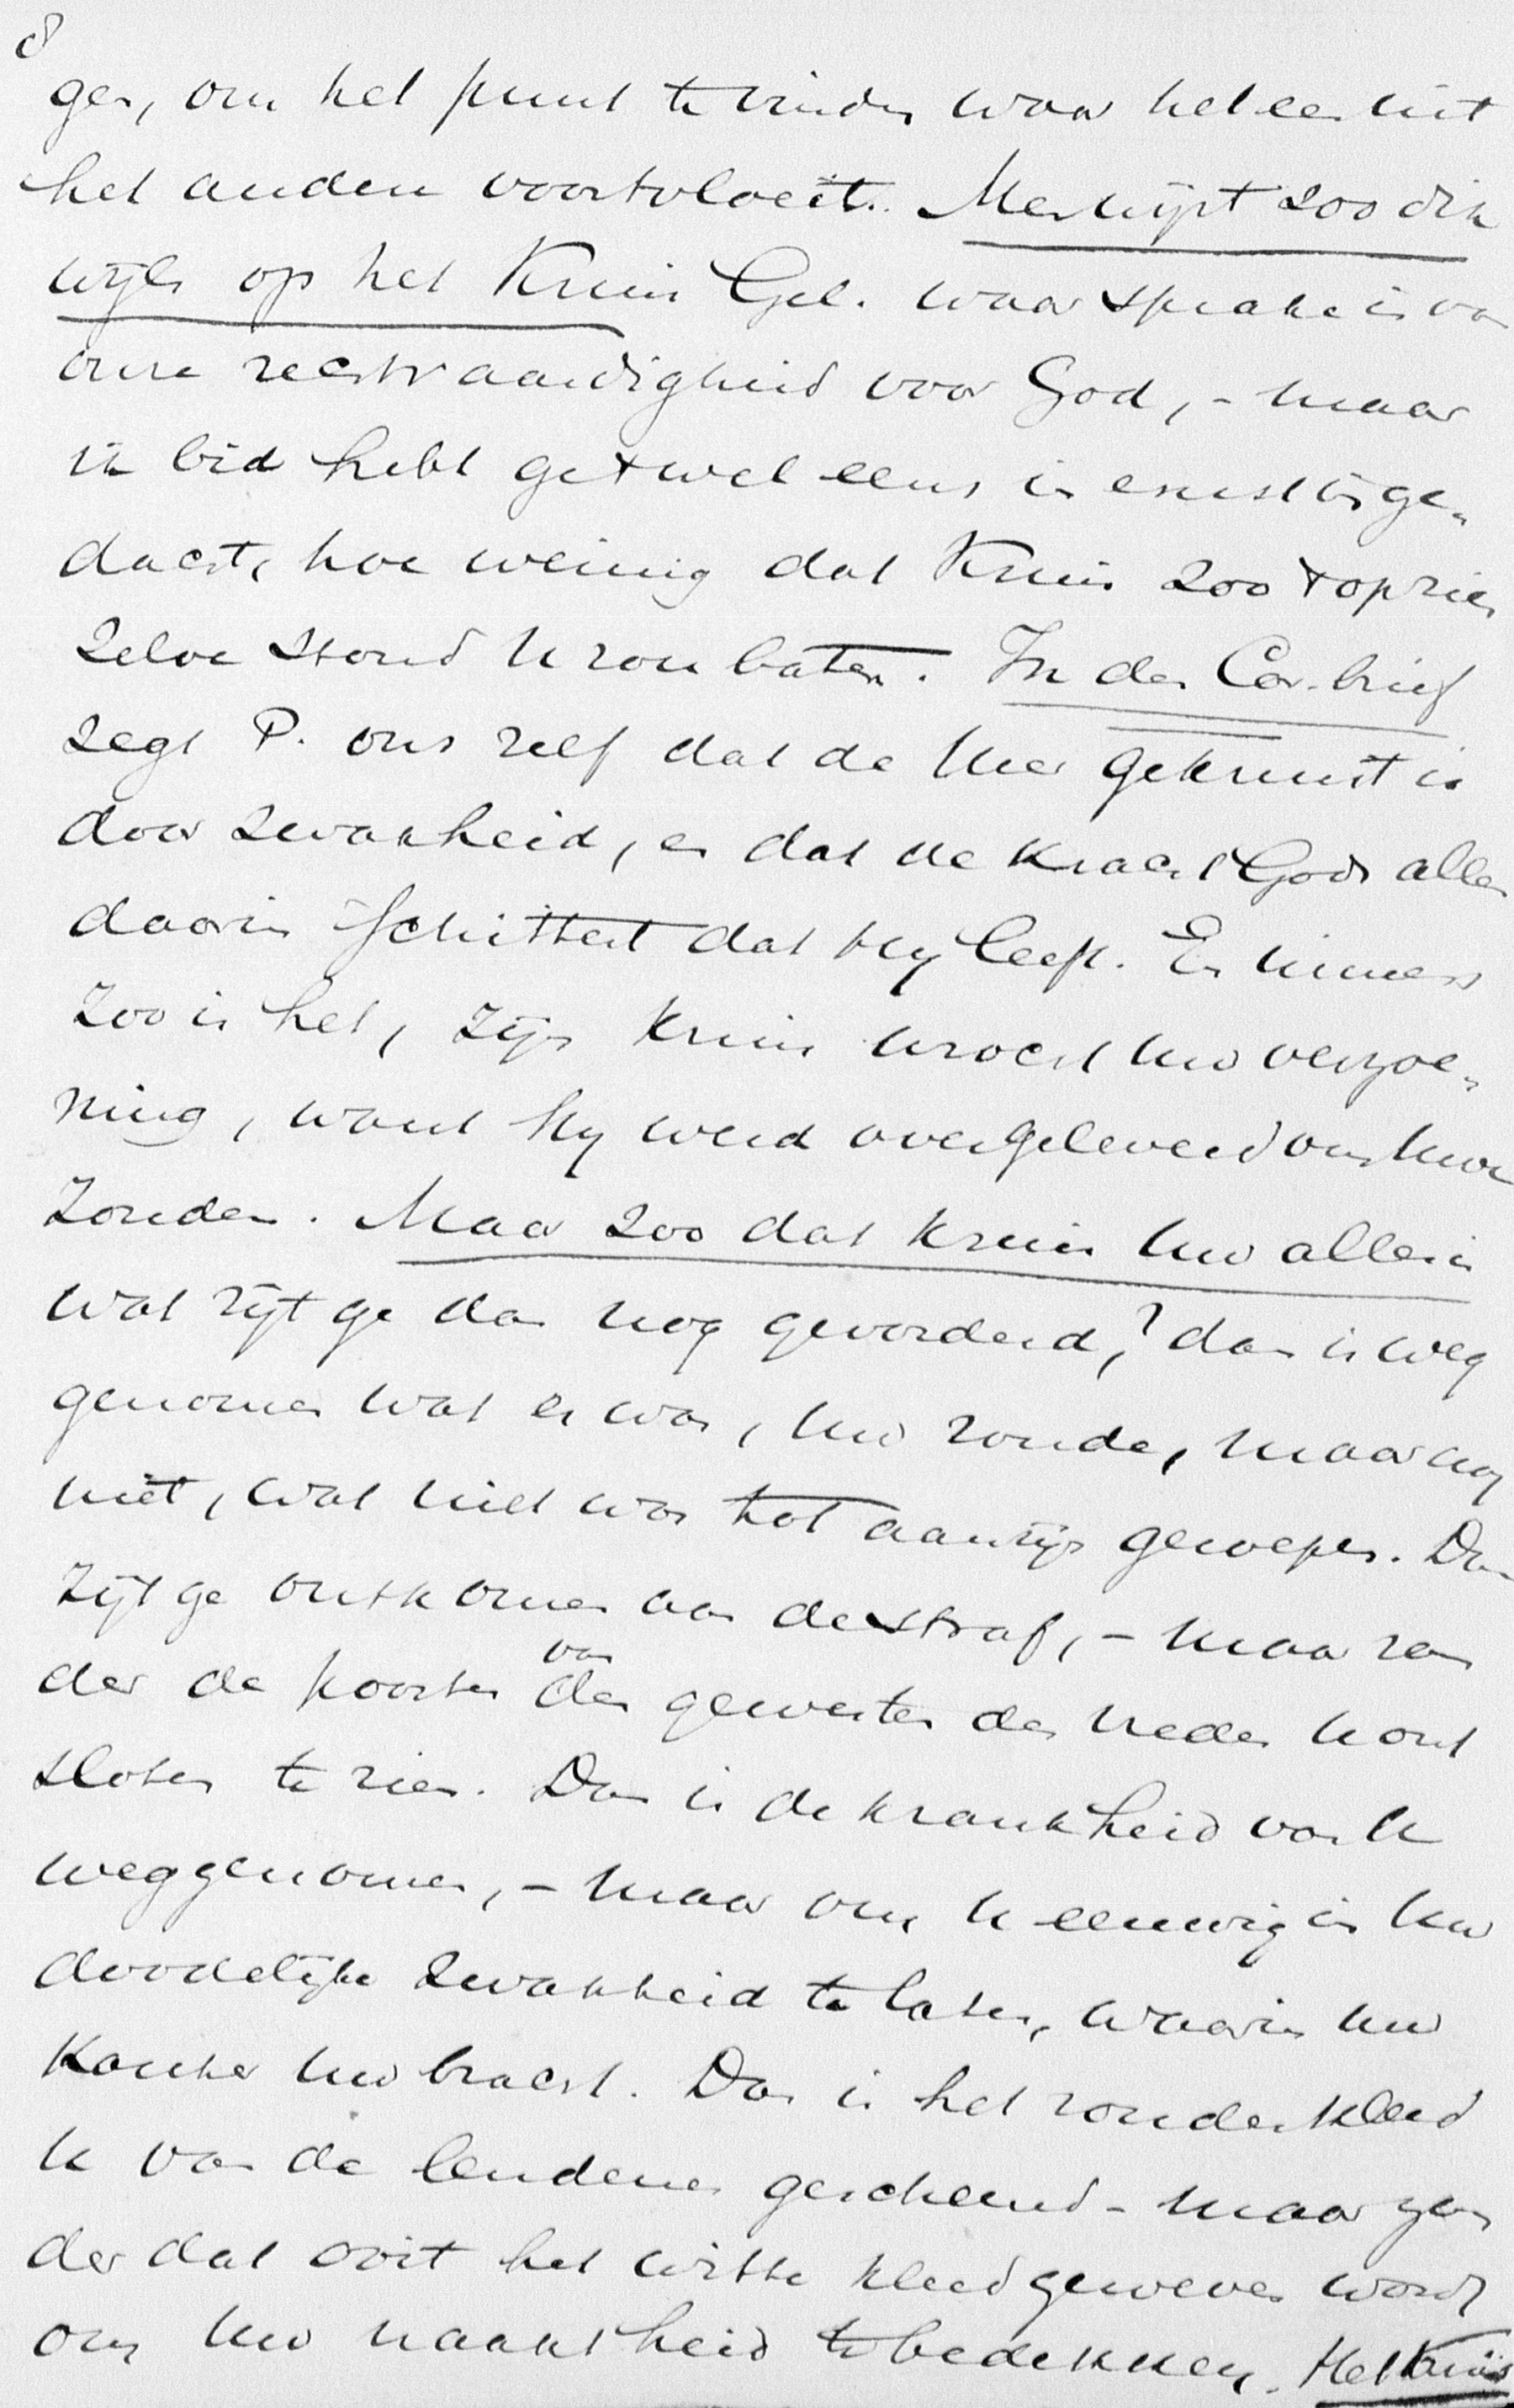 8
gen, om het punt te vinden waar het een uit
het andere voortvloeit. Men wijst zoo dik
wijls op het Kruis Gel. waar sprake is van
onze rechtvaardigheid voor God, - maar
ik bid hebt ge wel eens in ernst inge-
dacht, hoe weinig dat Kruis zoo 't op zich
zelve stond U zou baten. In den Cor. brief
zegt P. ons zelf dat de Heer gekruist is
door zwakheid, en dat de kracht Gods alleen
daarin schittert dat hij leeft. En immers
zoo is het, zijn kruis wrocht uw verzoe-
ning, want hij werd overgeleverd om uwe
zonden. Maar zoo dat kruis uw alleen is
wat zijt ge dan nog gevorderd,? dan is weg
genomen wat er was, uw zonde, maar nog
niet, wat niet was tot aanzijn geroepen. Dan
zijt ge ontkomen aan de straf, - maar zon
der de poorten van den gewesten des vreden U ont
sloten te zien. Dan is de krankheid van U
weggenomen, - maar om U eeuwig in uw
doodelijke zwakheid te laten, waarin uw
kanker uw bracht. Dan is het zondenkleed
U van de lendenen gescheurd - maar zon
der dat ooit het witte kleed geweven wordt
om uw naaktheid te bedekken. Het Kruis